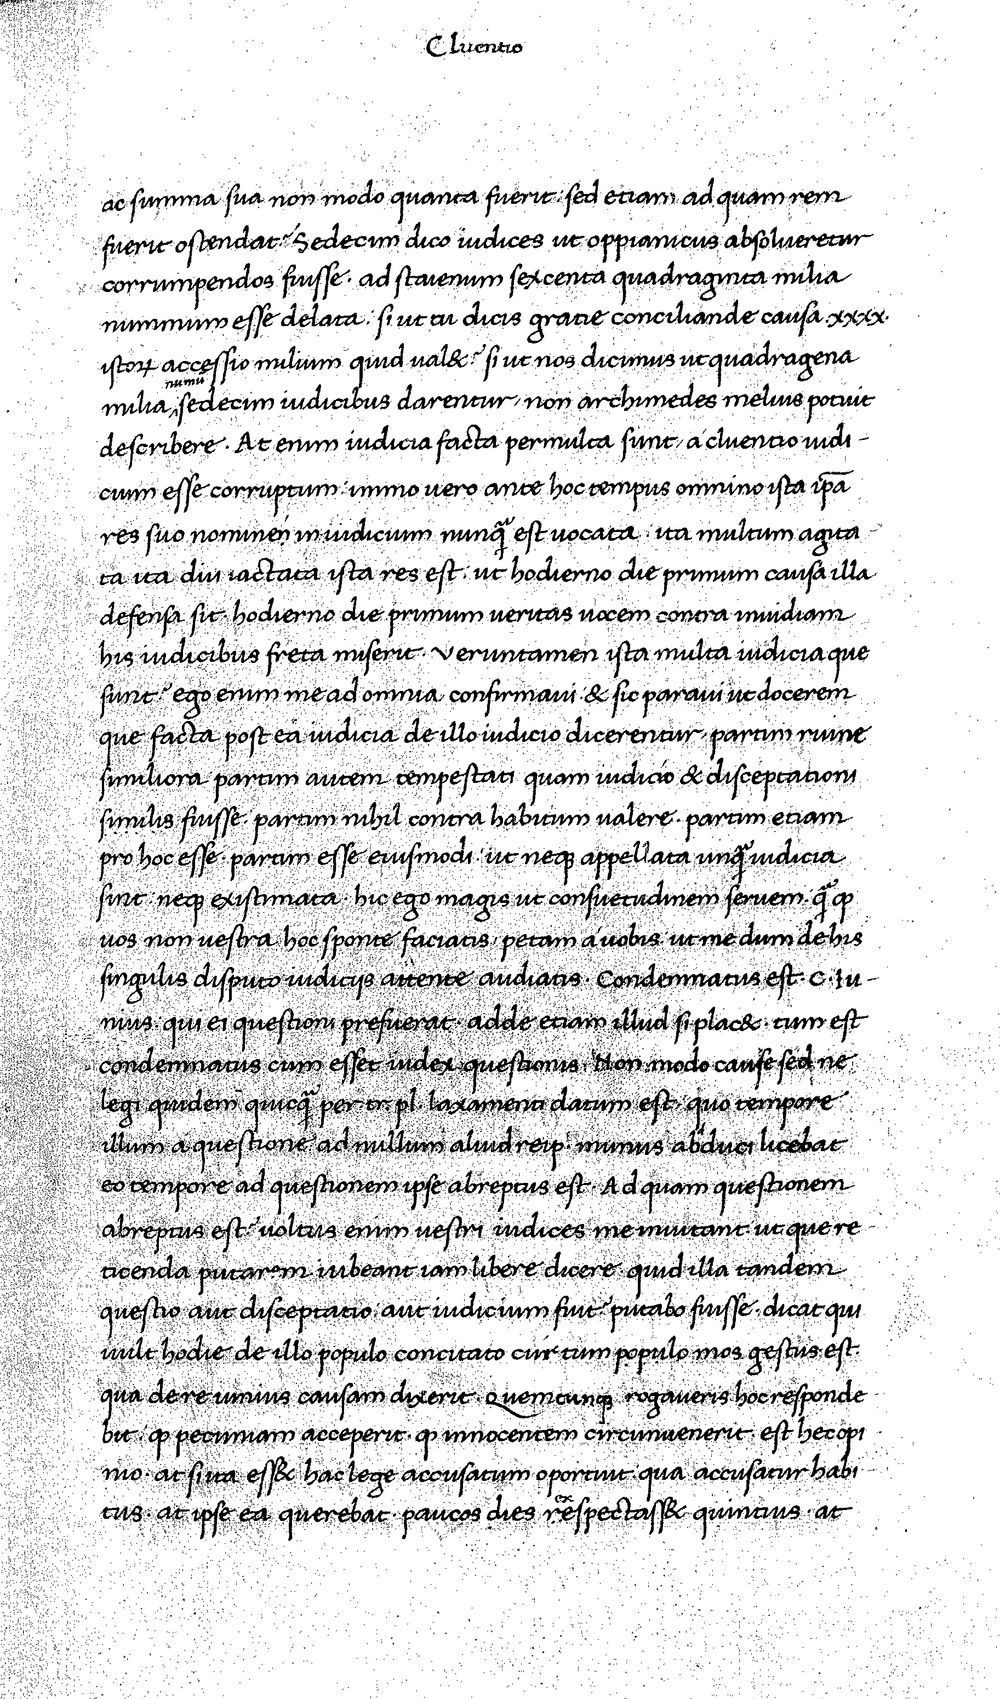 Cluentio
ac summa sua non modo quanta fuerit: sed etiam ad quam rem
fuerit ostendat? Sedecim dico iudices ut oppianicus absolueretur
corrumpendos fuisse. ad staienum sexcenta quadraginta milia
nummum esse delata. si ut tu dicis gratie conciliande causa xxxx.
istoꝝ accessio milium quid ual&? si ut nos dicimus ut quadragena
numū
milia, sedecim iudicibus darentur, non archimedes melius potuit
describere. At enim iudicia facta permulta sunt, a cluentio iudi-
cium esse corruptum: immo uero ante hoc tempus omnino ista ip̄a
res suo nominen in iudicium nunꝗ̃ est uocata. ita multum agita-
ta ita diu iactata ista res est. ut hodierno die primum causa illa
defensa sit. hodierno die primum ueritas uocem contra inuidiam
his iudicibus freta miserit. Veruntamen ista multa iudicia que
sunt? ego enim me ad omnia confirmaui & sic paraui ut docerem
que facta post ea iudicia de illo iudicio dicerentur, partim ruine
similiora partim autem tempestati quam iudicio & disceptationi
similis fuisse. partim nihil contra habitum ualere. partim etiam
pro hoc esse. partim esse eiusmodi: ut neqꝫ appellata unꝗ̃ iudicia
sint. neqꝫ existimata. hic ego magis ut consuetudinem seruem. ꝗ̃ ꝙ
uos non uestra hoc sponte faciatis, petam a uobis ut me dum de his
singulis disputo iudicijs attente audiatis. Condemnatus est. C. Iu-
nius. qui ei questioni prefuerat. adde etiam illud si plac&. tum est
condemnatus cum esset iudex questionis. Non modo cause sed ne
legi quidem quicꝗ̃ per tr. pl. laxamenti datum est. quo tempore
illum a questione ad nullum aliud reip. munus abduci licebat
eo tempore ad questionem ipse abreptus est. Ad quam questionem
abreptus est? uoltus enim uestri iudices me inuitant ut que re-
ticenda putarem iubeant iam libere dicere. quid illa tandem
questio aut disceptatio aut iudicium fuit? putabo fuisse. dicat qui
uult hodie de illo populo concitato cur tum populo mos gestus est.
qua de re unius causam dixerit. Quemcunqꝫ rogaueris hoc responde
bit. ꝙ pecuniam acceperit. ꝙ innocentem circumuenerit. est hec opi
nio. at si ita ess& hac lege accusatum oportuit qua accusatur habi-
tus. at ipse ea querebat. paucos dies respectass& quintius. at